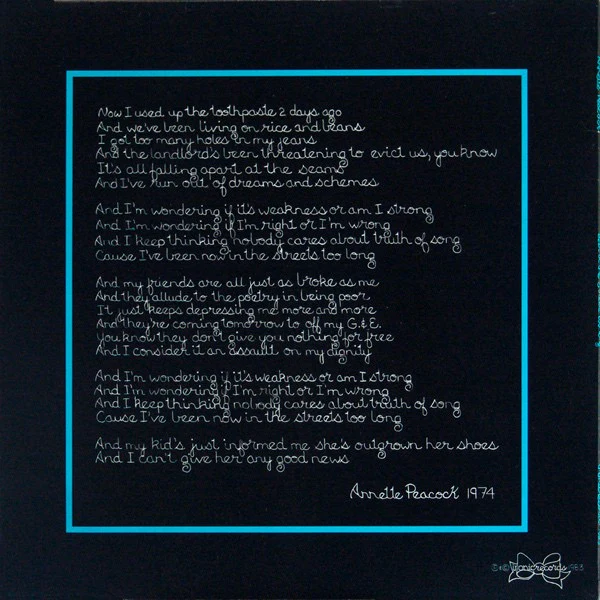 Now I used up the toothpaste 2 days ago
And we've been living on rice and beans
I got too many holes in my jeans
And the landlord's been threatening to evict us, you know
It's all falling apart at the seams
And I've run out of dreams and schemes
And I'm wondering if it's weakness or am I strong
And I'm wondering if I'm right or I'm wrong
And I keep thinking nobody cares about truth of song
Cause I've been now in the streets too long
And my friends are all just as broke as me
And they allude to the poetry in being poor
It just keeps depressing me more and more
And they're coming tomorrow to off my G.&E.
You know they don't give you nothing for free
And I consider it an assault on my dignity
And I'm wondering if it's weakness or am I strong
And I'm wondering if I'm right or I'm wrong
And I keep thinking nobody cares about truth of song
Cause I've been now in the streets too long
And my kid's just informed me she's outgrown her shoes
And I can't give her any good news
Annette Peacock 1974
ironic records 1983